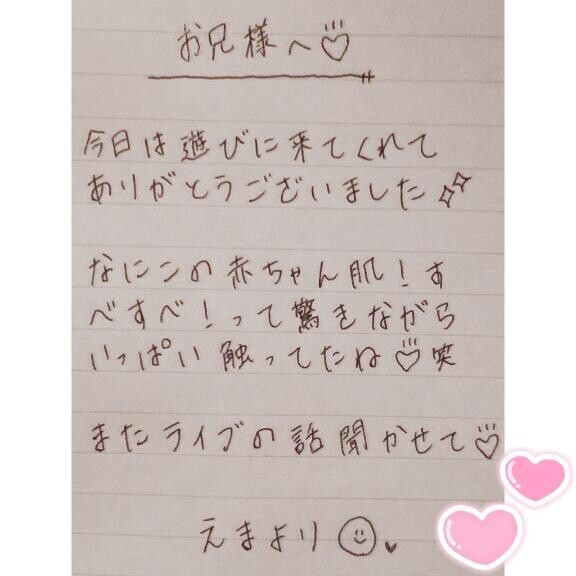 お兄様へ♡
今日は遊びに来てくれて
ありがとうございました
なにこの赤ちゃん肌！す
べすべ！って驚きながら
いっぱい触ってたね♡笑
またライブの話聞かせて♡
えまより